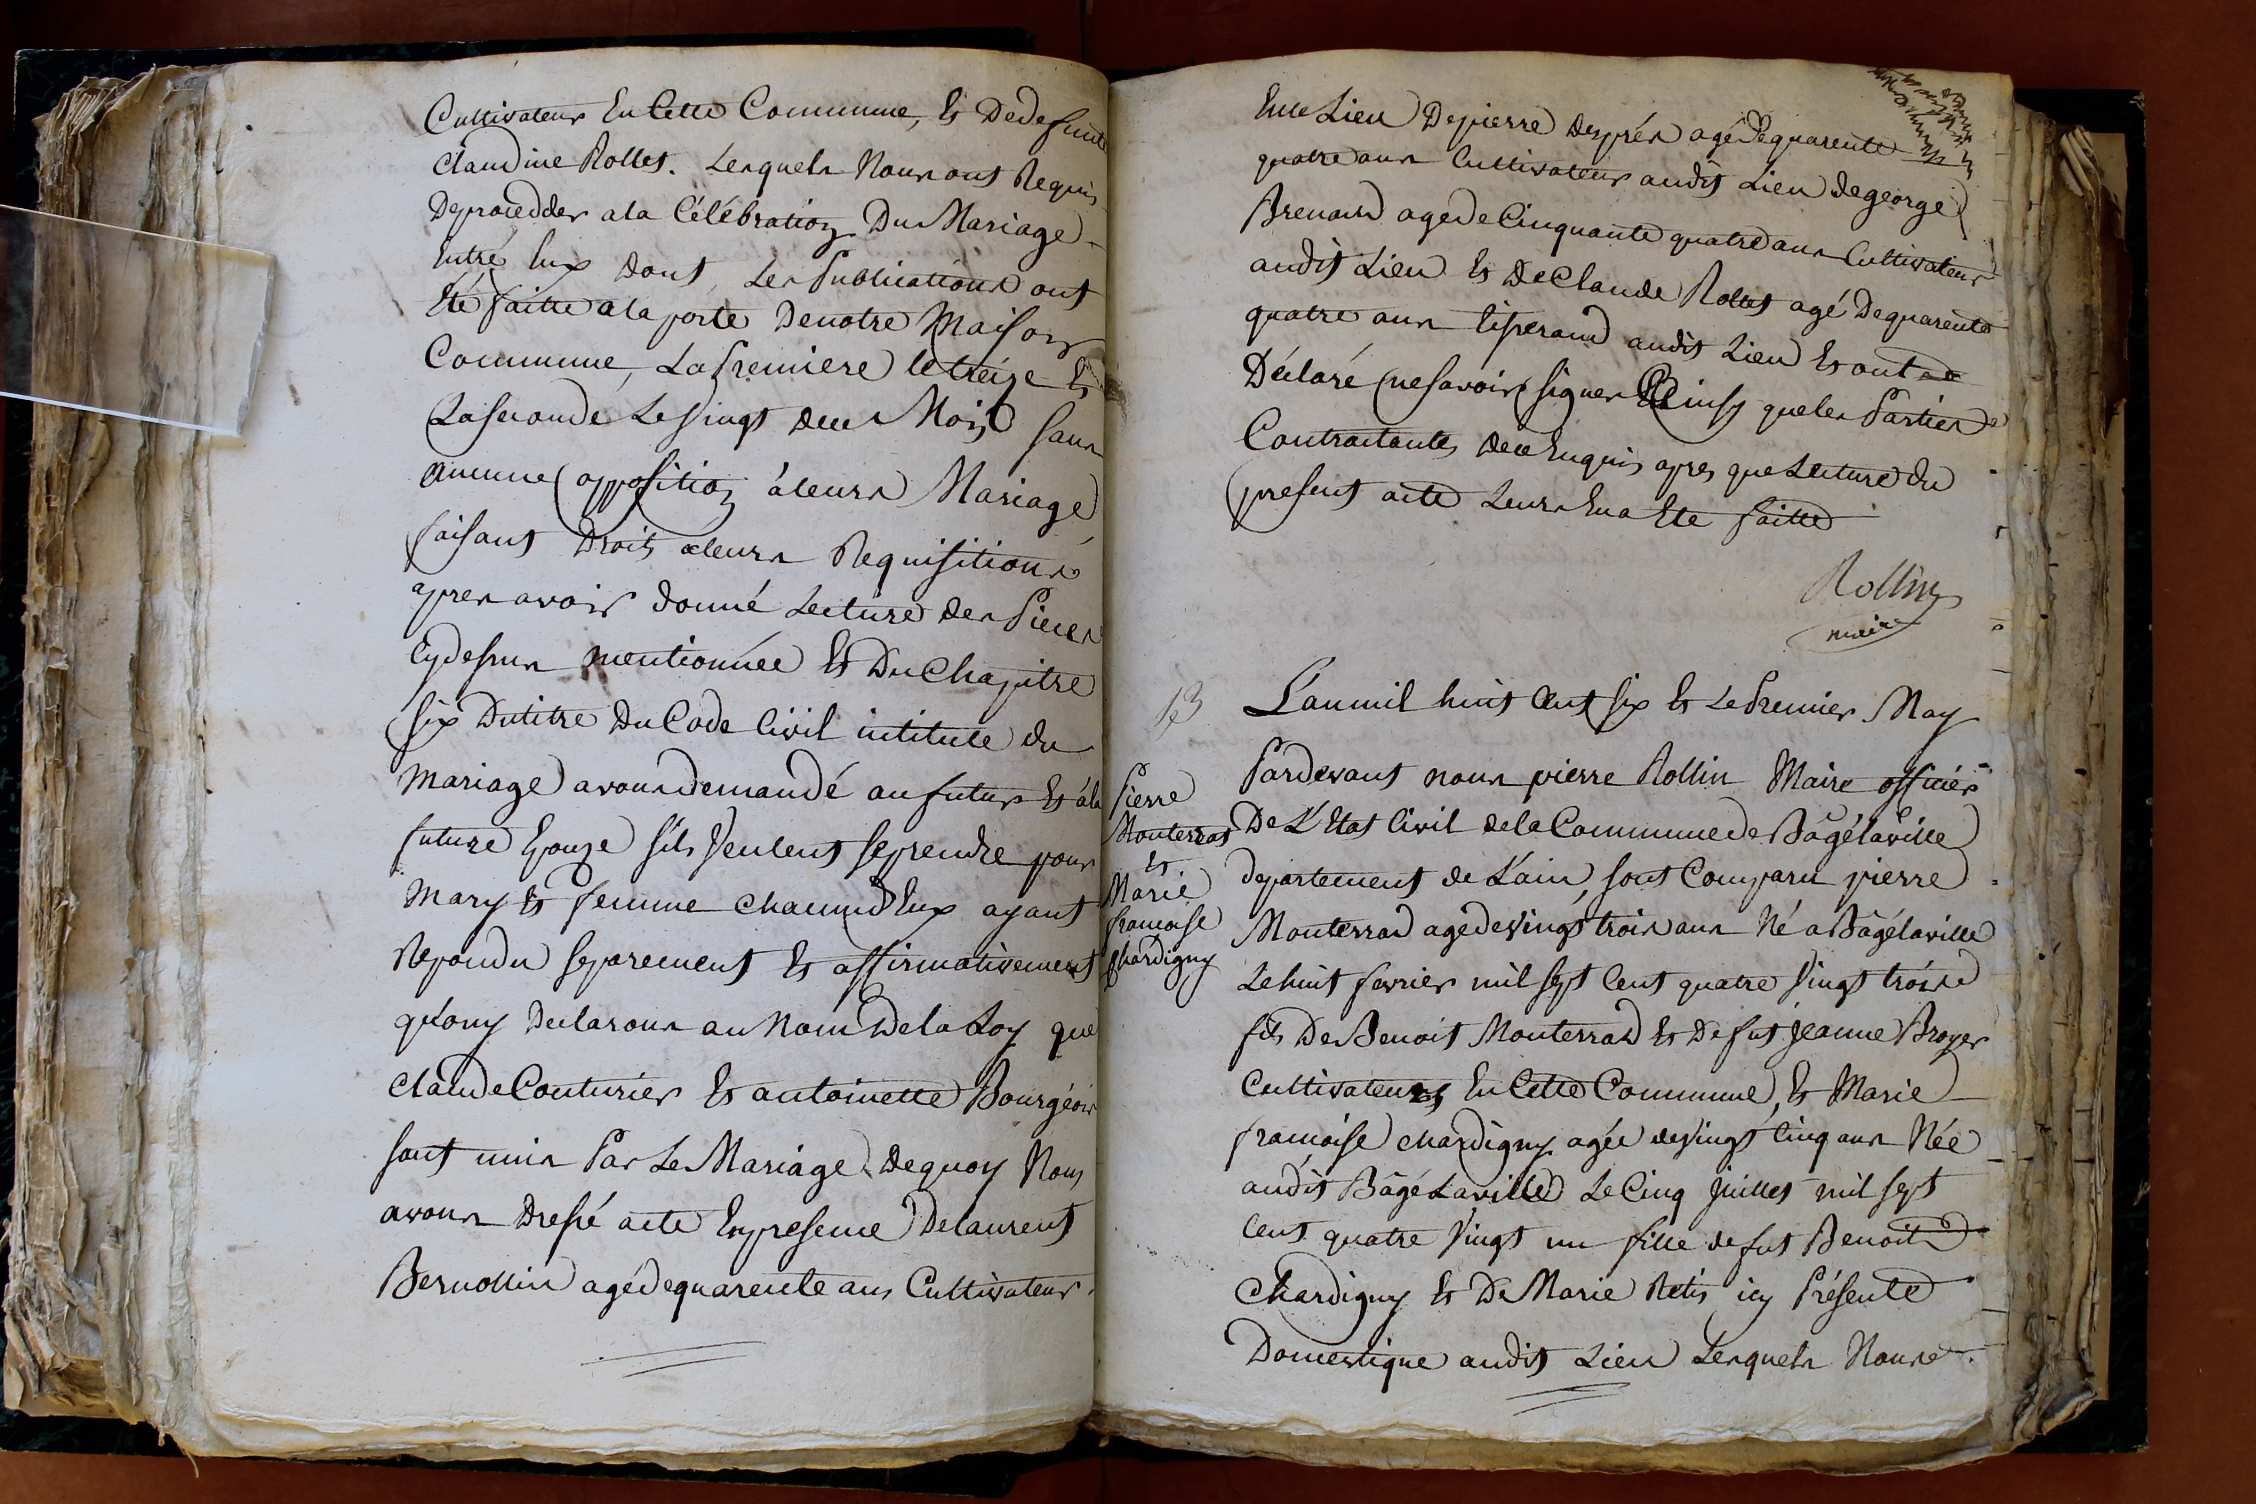 Cultivateur En Cette Commune, Et De defunte
Claudine Rollet. Lesquels Nous ont Requis
De procedder a la Célébration Du Mariage
Entre Eux dont les Publications ont
Eté faitte a la porte De notre Maison
Commune, La premiere le treize Et
La seconde Le Vingt du Mois sans
Aucune opposition à leurs Mariage
faisant Droit a leurs Requisitions
apres avoir donné Lecture des Pieces
Cy dessus mentionnée Et Du Chapitre
Six Du titre Du Code Civil intitule du
Mariage avons demandé au futur Et à la
future Epouze s'ils Veulent se prendre pour
Mary Et femme chacun d'Eux ayant
Repondu separement Et affirmativement
qu'ouy Declarons au Nom De la Loy que
Claude Couturier Et antoinette Bourgeois
sont unis Par Le Mariage De quoy Nous
avons Dressé acte En presence De laurent
Bernollin agé de quarente ans Cultivateur
En ce Lieu De pierre després agé De quarente
quatre ans Cultivateur audit Lieu de george
Brenard agé de Cinquante quatre ans Cultivateur
audit Lieu Et De Claude Rollet agé De quarente
quatre ans tisserand audit Lieu Et ont
Déclaré ne savoir signer Ainsy que les Parties
Contractantes de ce Enquis apres que Lecture du
present acte Leurs En a Ete faitte
Rollin
maire
13
L'an mil huit Cent six Et Le Premier May
Pardevant nous pierre Rollin Maire officier
De L'Etat Civil de la Commune de Bâgé la ville
departement de L'ain, sont Comparu pierre
Monterrad agé de Vingt trois ans Né a Bâgé la ville
Le huit fevrier mil sept Cent quatre Vingt trois
fils De Benoit Monterrad Et De fut Jeanne Broyer
Cultivateurs En Cette Commune, Et Marie
francoise chardigny agée de Vingt Cinq ans Née
audit Bâgé La ville Le Cinq Juillet mil sept
Cent quatre Vingt un fille de fut Benoit
Chardigny Et De Marie Retis icy Présente
Domestique audit Lieu Lesquels Nous
Pierre
Monterrat
Et
Marie
francoise
Chardigny